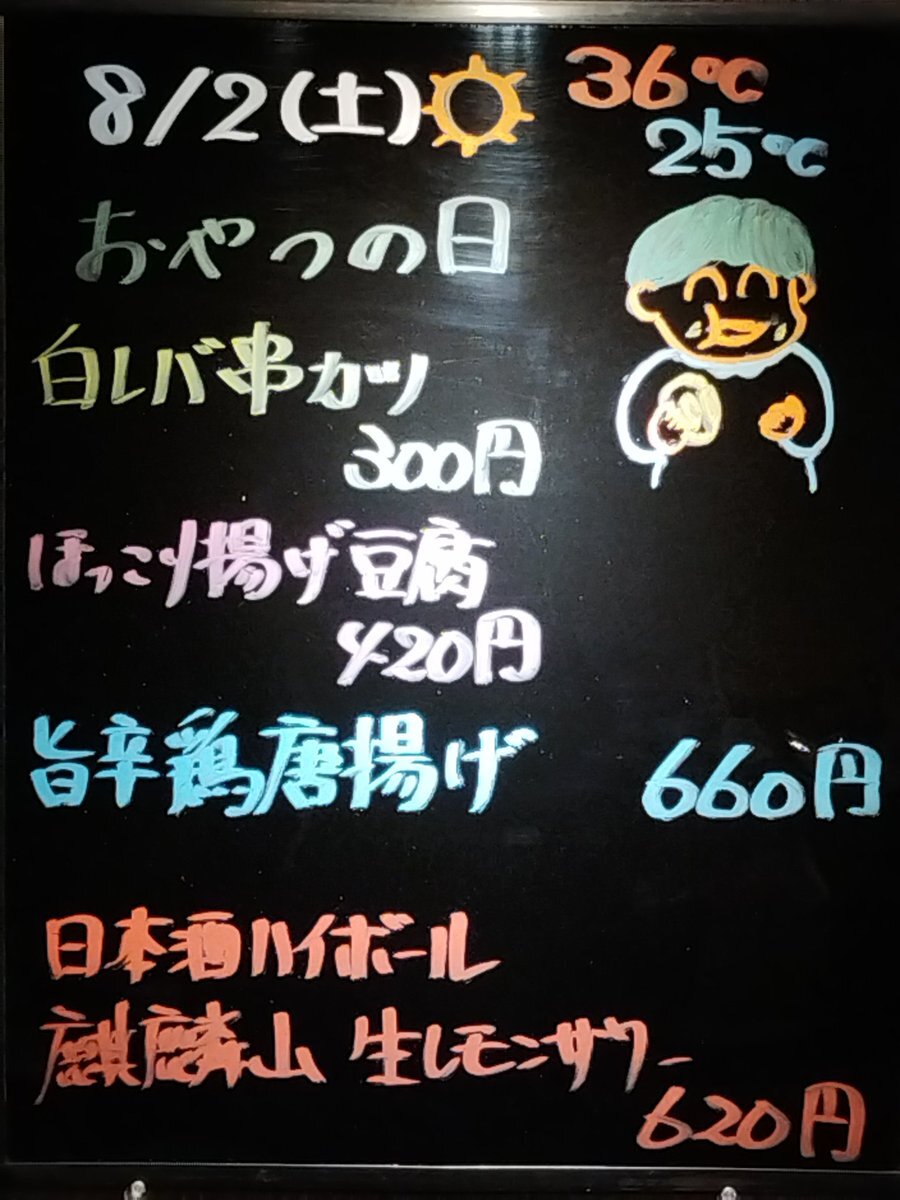 8/2(土) 36℃
25℃
おやつの日
白レバ串カツ
300円
ほっこり揚げ豆腐
420円
旨辛鶏唐揚げ 660円
日本酒ハイボール
麒麟山 生レモンサワー
620円